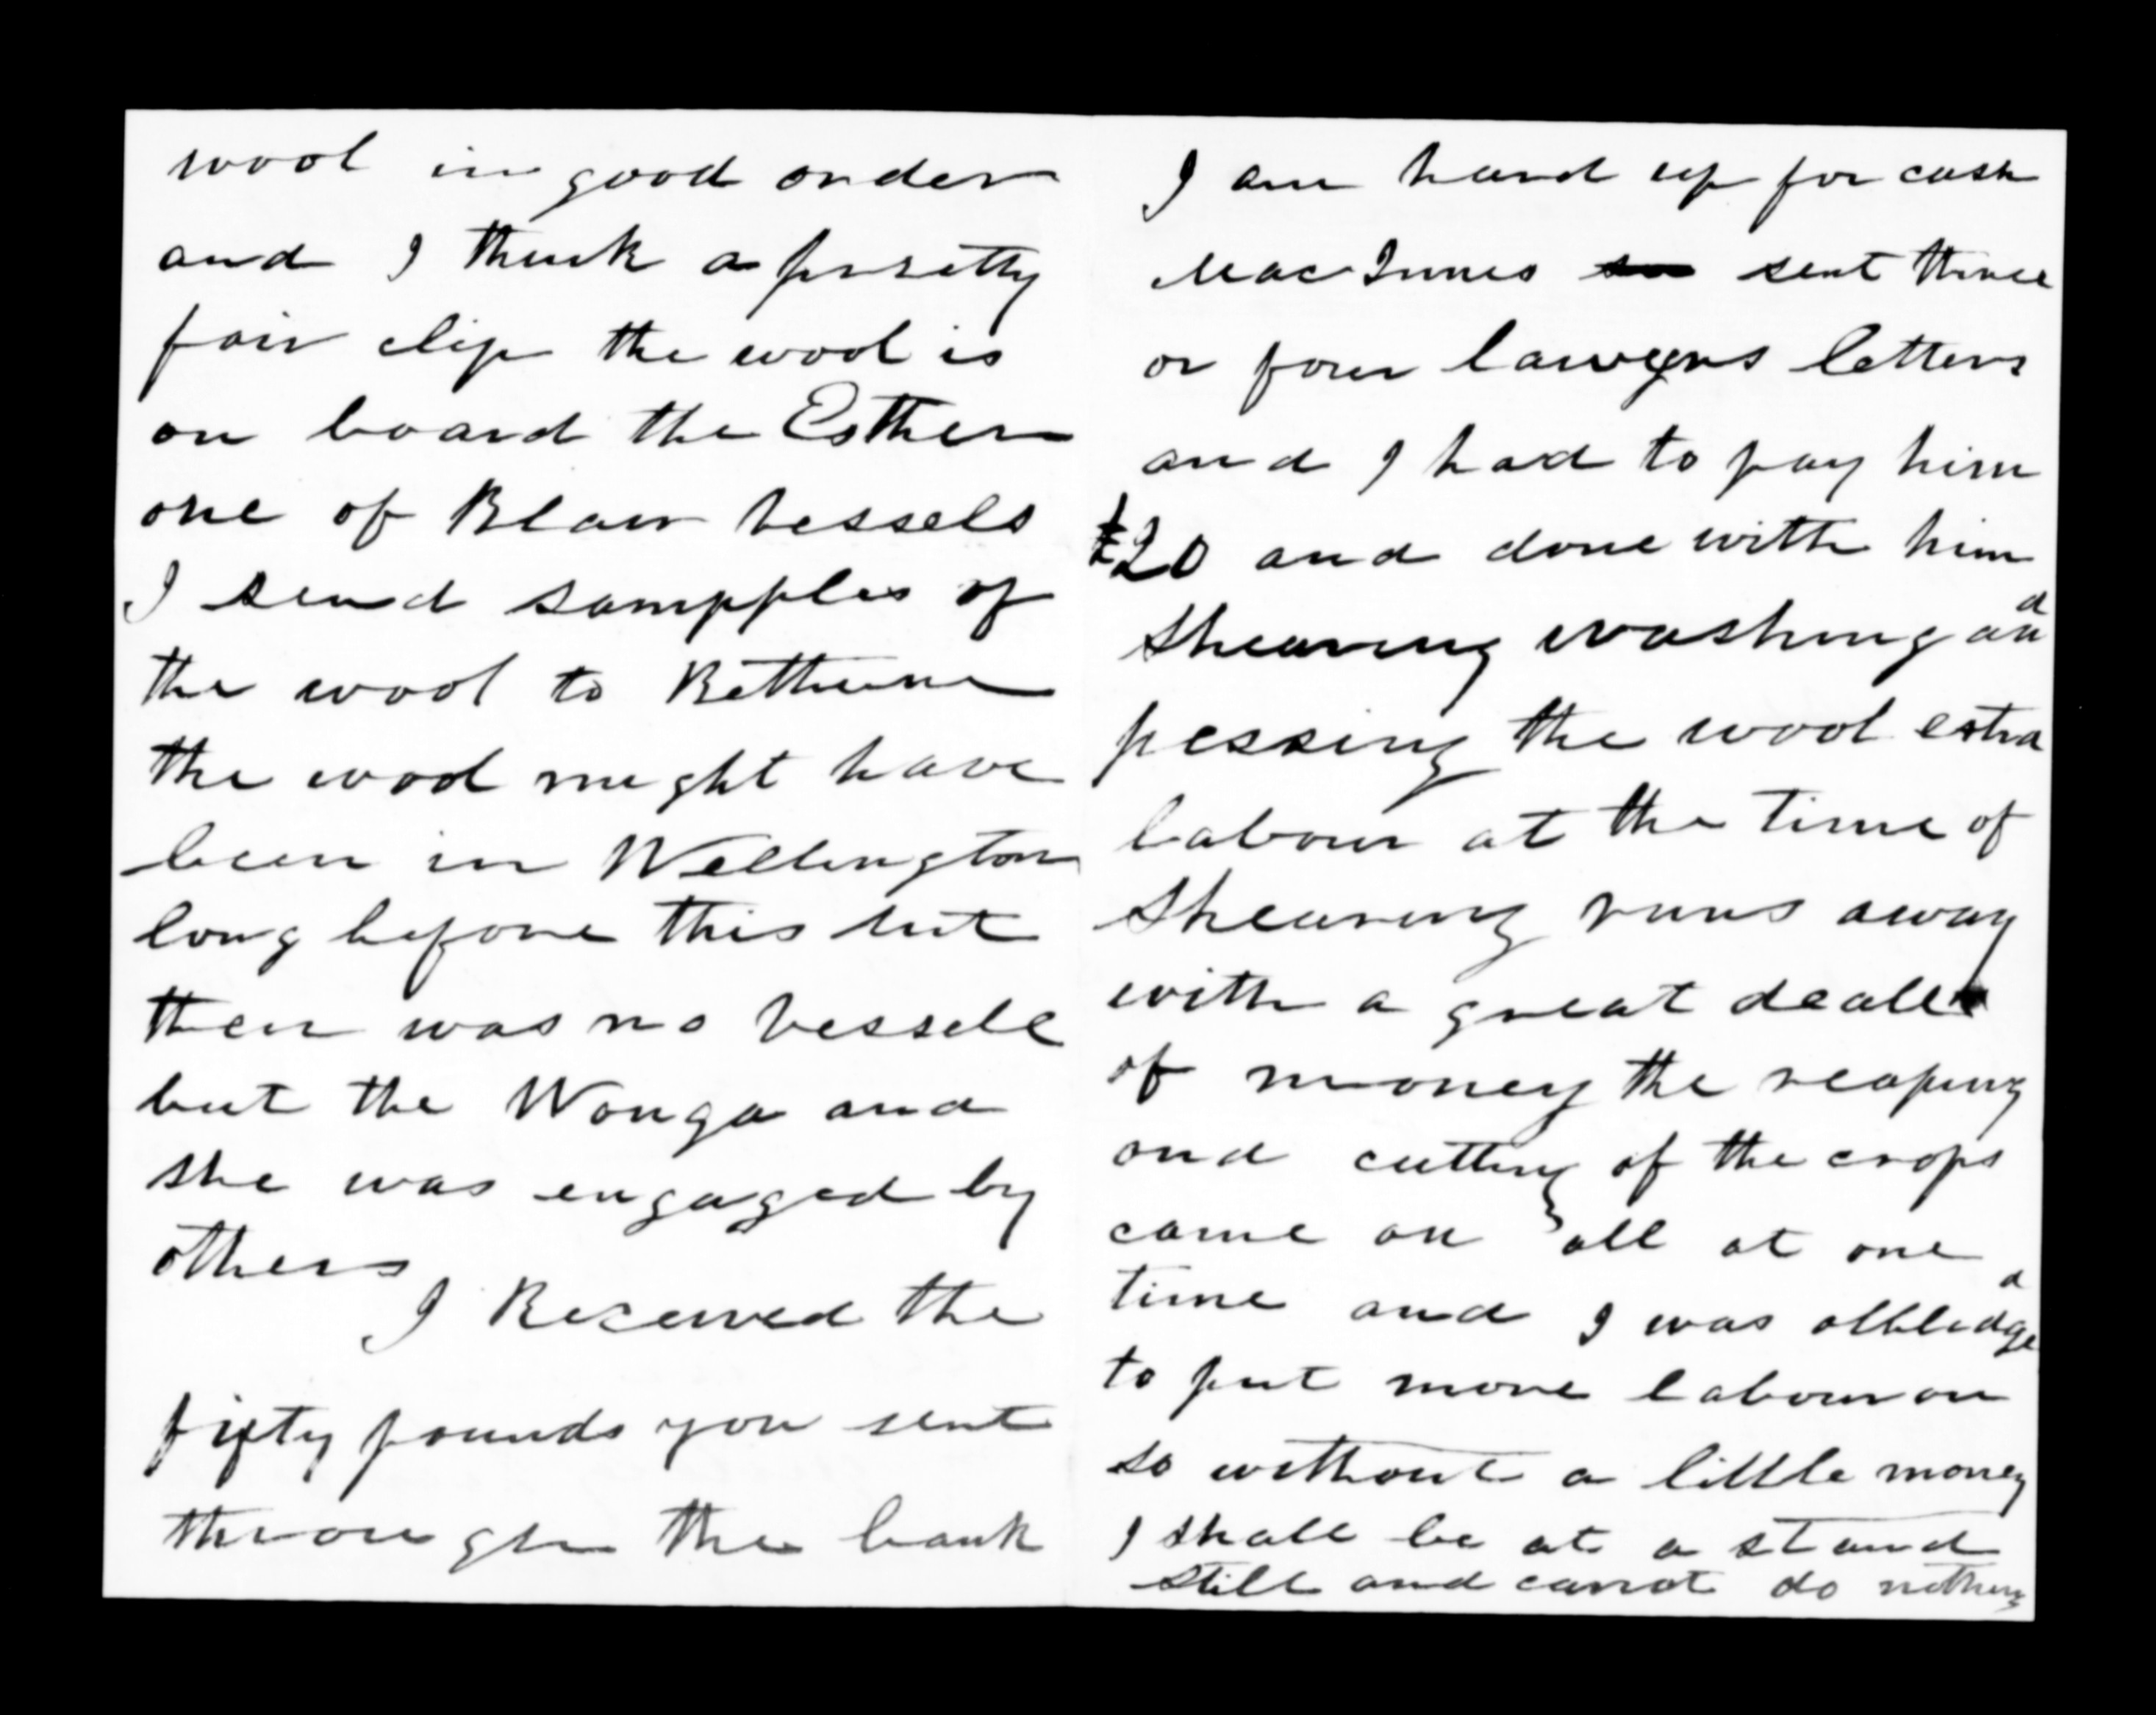 wool in good order
and I think a pretty
fair clip the wool is
on board the Esther
one of Blair vessels
I send sampples of
the wool to Bethune
the wool might have
been in Wellington
long before this but
ther was no vessele
but the Wonga and
she was engaged by
others
I Received the
fifty pounds you sent
through the bank
I am hard up for cash
MacInnes sent three
or four lawyers letters
and I had to pay him
£20 and done with him
Shearing washing and
pessing the wool extra
labour at the time of
Shearing runs away
with a great deall
of money the reaping
and cutting of the crops
came on all at one
time and I was obblidged
to put more labour on
so without a little money
I shall be at a stand
still and canot do nothing